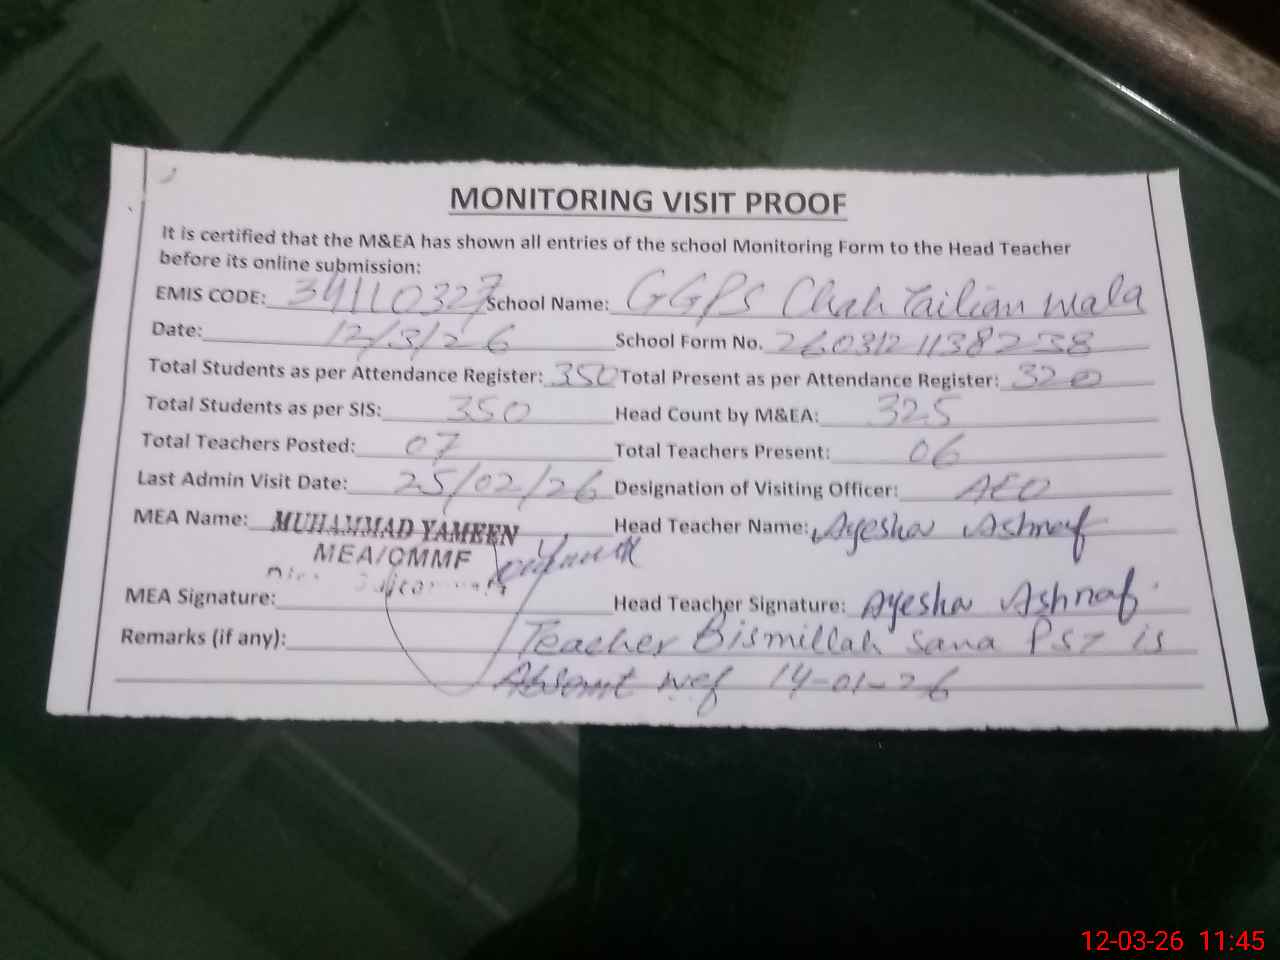 MONITORING VISIT PROOF
It is certified that the M&EA has shown all entries of the school Monitoring Form to the Head Teacher
before its online submission:
EMIS CODE: 34110327 School Name: GGPS Chah Tailian wala
Date: 12/3/26 School Form No. 26031211382238
Total Students as per Attendance Register: 350 Total Present as per Attendance Register: 320
Total Students as per SIS: 350 Head Count by M&EA: 325
Total Teachers Posted: 07 Total Teachers Present: 06
Last Admin Visit Date: 25/02/26 Designation of Visiting Officer: AEO
MEA Name: MUHAMMAD YAMEEN Head Teacher Name: Ayesha Ashraf
MEA/CMMF
MEA Signature: Head Teacher Signature: Ayesha Ashraf
Remarks (if any): Teacher Bismillah Sana PST is
Absent wef 14-01-26
12-03-26 11:45